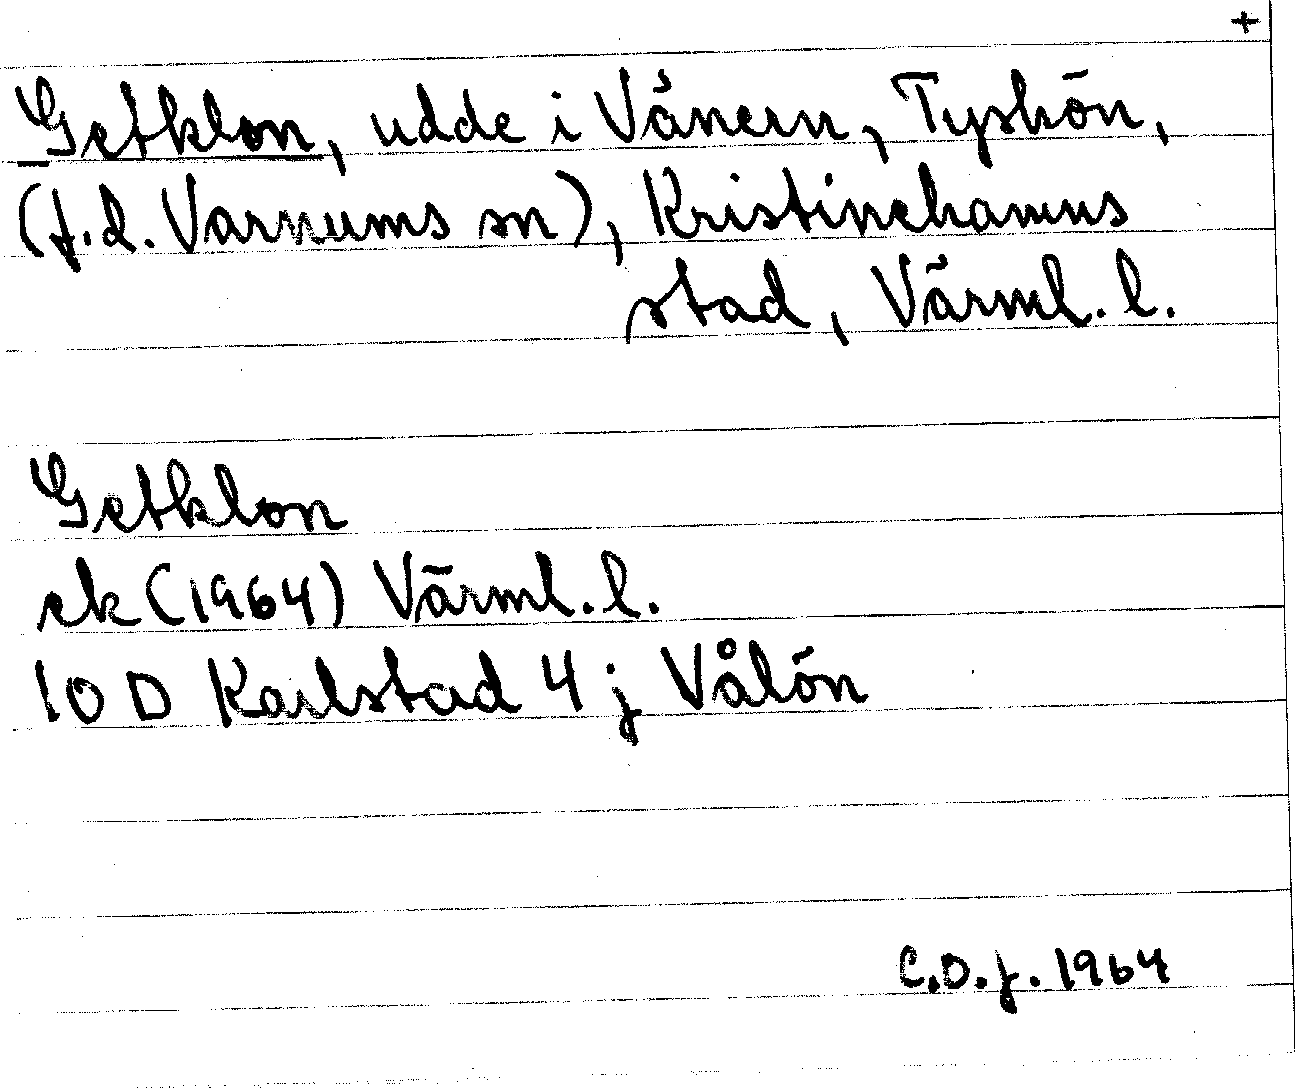 +
Getklon, udde i Vänern, Tyskön,
(f.d. Varnums sn), Kristinehamns
stad, Värml. l.
Getklon
ek (1964) Värml. l.
10 D Karlstad 4 j Vålön
C.O.J. 1964